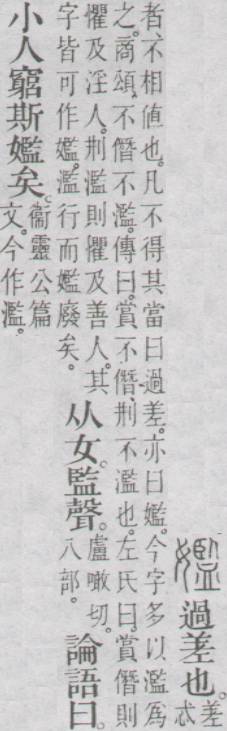 㜮過差也。差忒
者、不相値也。凡不得其當曰過差。亦曰㜮。今字多以濫爲
之。商頌。不僭不濫。傳曰。賞不僭、刑不濫也。左氏曰。賞僭則
懼及淫人。刑濫則懼及善人。其
字皆可作㜮。濫行而㜮廢矣。
从女。監聲。盧瞰切。八部。論語曰。
小人窮斯㜮矣。衞靈公篇
文。今作濫。